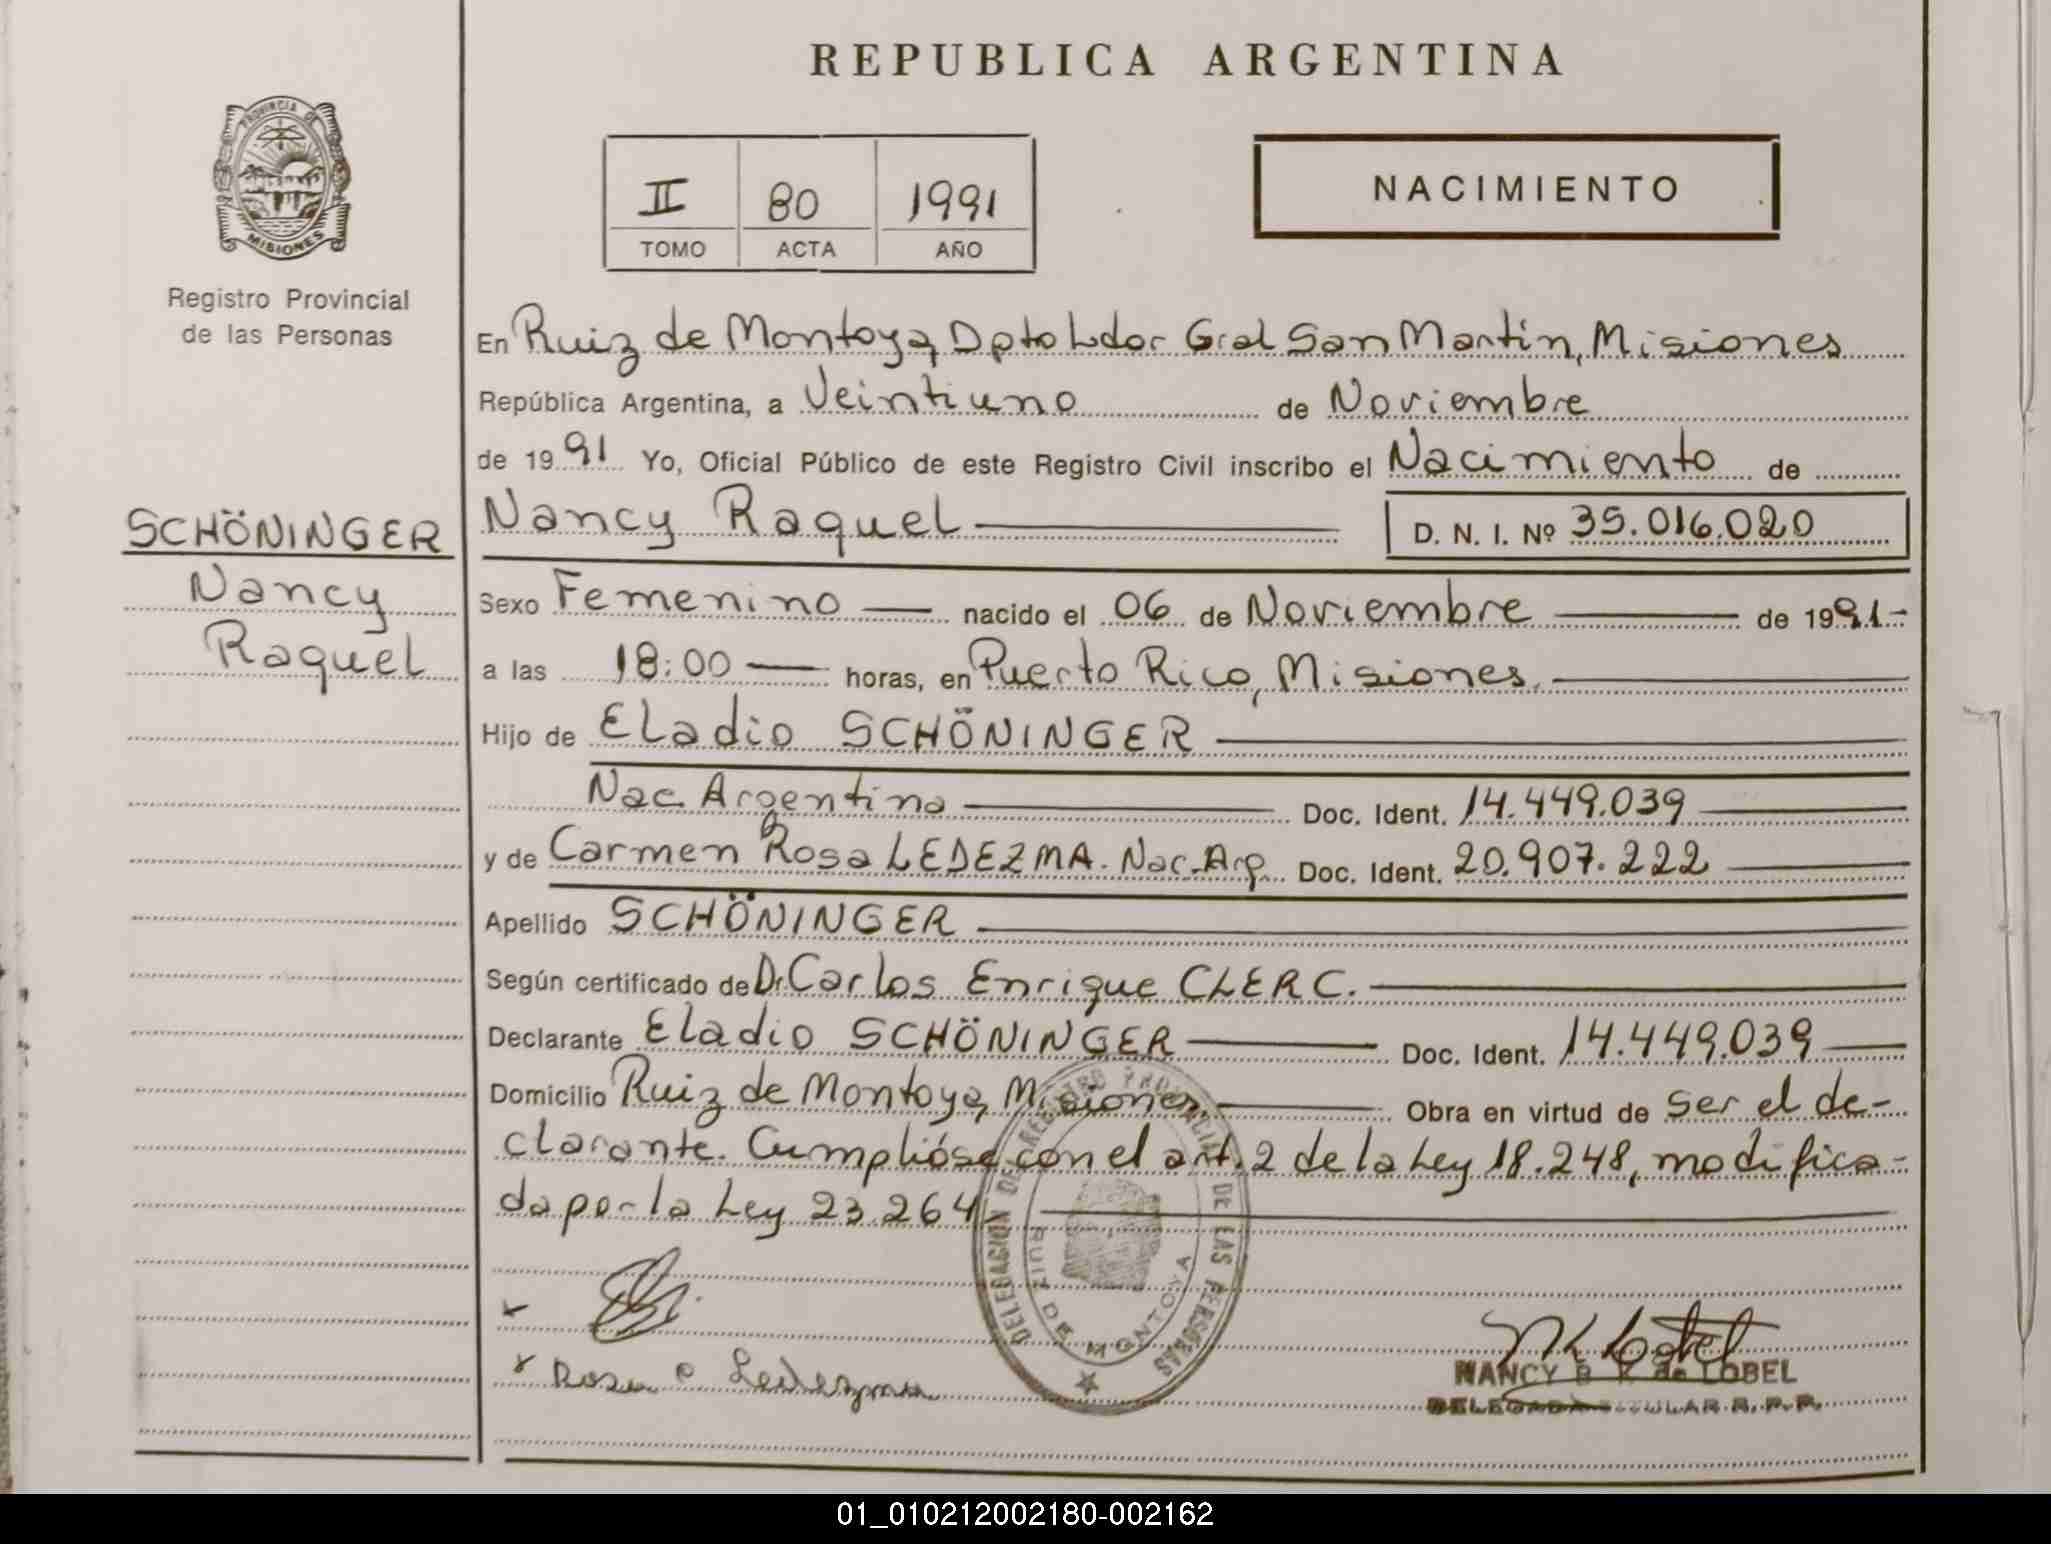 REPUBLICA ARGENTINA
PROVINCIA DE
MISIONES
Registro Provincial
de las Personas
II 80 1991
TOMO ACTA AÑO
NACIMIENTO
En Ruiz de Montoya, Dpto Ldor Gral San Martín, Misiones
República Argentina, a Veintiuno de Noviembre
de 1991 Yo, Oficial Público de este Registro Civil inscribo el Nacimiento de
SCHÖNINGER
Nancy
Raquel
Nancy Raquel D. N. I. Nº 35.016.020
Sexo Femenino nacido el 06 de Noviembre de 1991.-
a las 18:00 horas, en Puerto Rico, Misiones.
Hijo de Eladio SCHÖNINGER
Nac. Argentina Doc. Ident. 14.449.039
y de Carmen Rosa LEDEZMA. Nac. Arg. Doc. Ident. 20.907.222
Apellido SCHÖNINGER
Según certificado de Dr. Carlos Enrique CLERC.
Declarante Eladio SCHÖNINGER Doc. Ident. 14.449.039
Domicilio Ruiz de Montoya, Misiones. Obra en virtud de ser el de-
clarante. Cumplióse con el art. 2 de la Ley 18.248, modifica-
da por la Ley 23.264
DELEGACION DE REGISTRO PROVINCIAL DE LAS PERSONAS
RUIZ DE MONTOYA
Rosa C Ledezma
NANCY B K de LOBEL
DELEGADA TITULAR R. P. P.
01_010212002180-002162